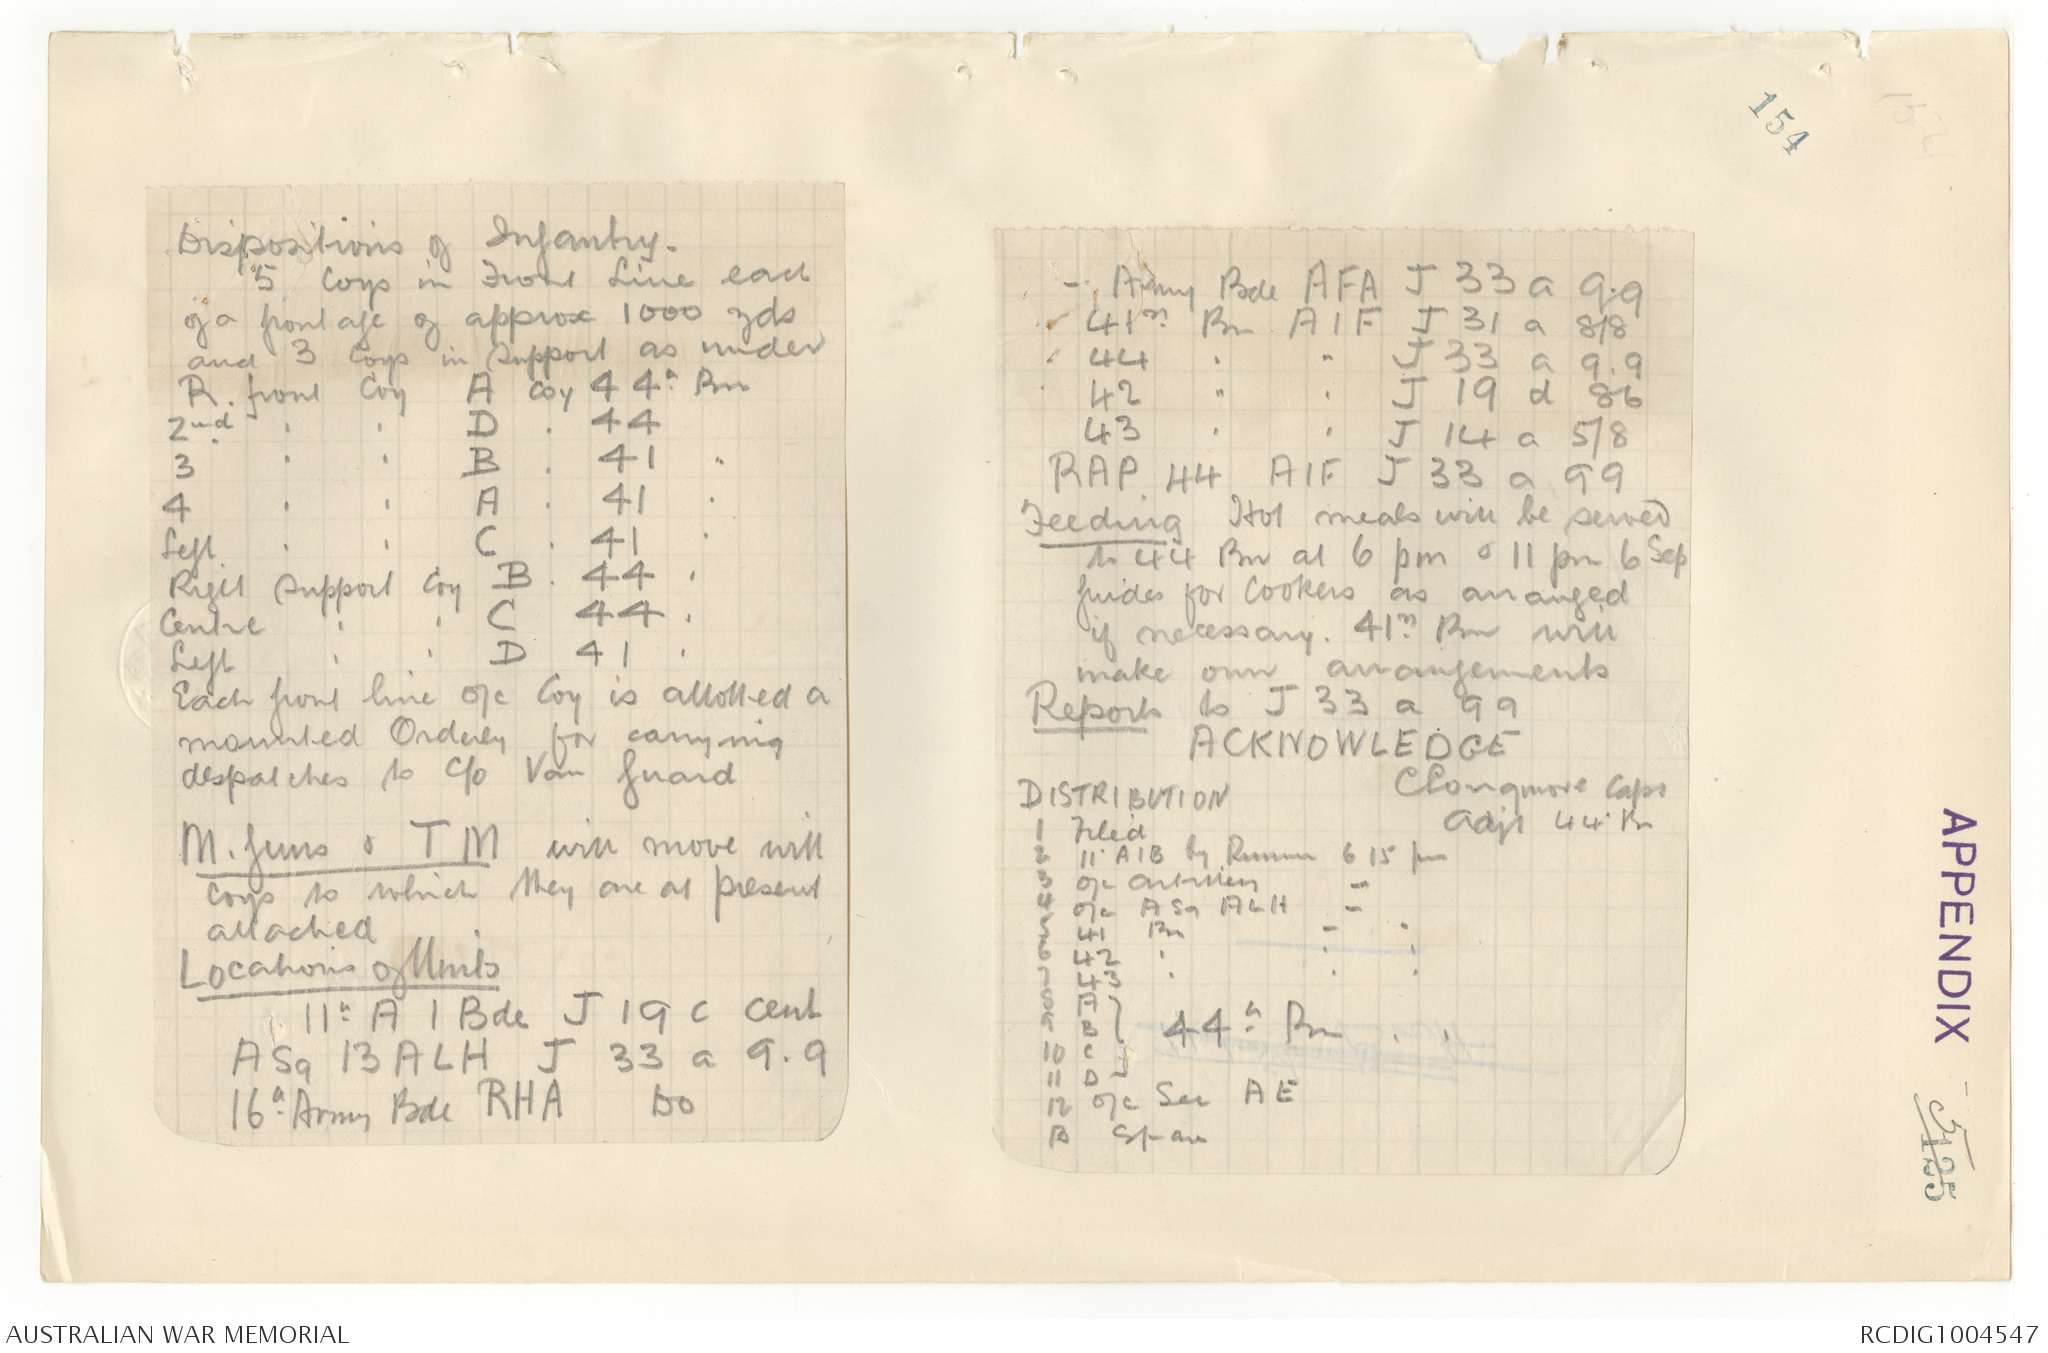 154
Dispositions of Infantry.
5 Coys in Front Line each
of a frontage of approx 1000 yds
and 3 Coys in Support as under
R. front Coy A Coy 44th Bn
2nd " " D " 44
3 " " B " 41 "
4 " " A " 41 "
Left " " C " 41 "
Right Support Coy B " 44 "
Centre " " C 44 "
Left " " D 41 "
Each front line O/C Coy is allotted a
mounted Orderly for carrying
despatches to C/O Van Guard
M. Guns & TM will move with
Coys to which they are at present
attached
Locations of Units
11th A I Bde J 19 c cent
A Sq 13 ALH J 33 a 9.9
16th Army Bde RHA Do
- Army Bde AFA J 33 a 9.9
41st Bn AIF J 31 a 8/8
44 " " J 33 a 9.9
42 " " J 19 d 86
43 " " J 14 a 5/8
RAP 44 AIF J 33 a 99
Feeding Hot meals will be served
to 44 Bn at 6 pm & 11 pm 6 Sep
guides for Cookers as arranged
if necessary. 41st Bn will
make own arrangements
Reports to J 33 a 99
ACKNOWLEDGE
C Longmore Capt
Adjt 44 Bn
DISTRIBUTION
1 Filed
2 11 AIB by Runner 6 15 pm
3 O/c Artillery "
4 O/c A Sq ALH "
5 41 Bn " "
6 42 " " "
7 43 " " "
8 A
9 B 44th Bn " "
10 C
11 D
12 O/c Sec AE
13 Spare
APPENDIX
AUSTRALIAN WAR MEMORIAL
RCDIG1004547